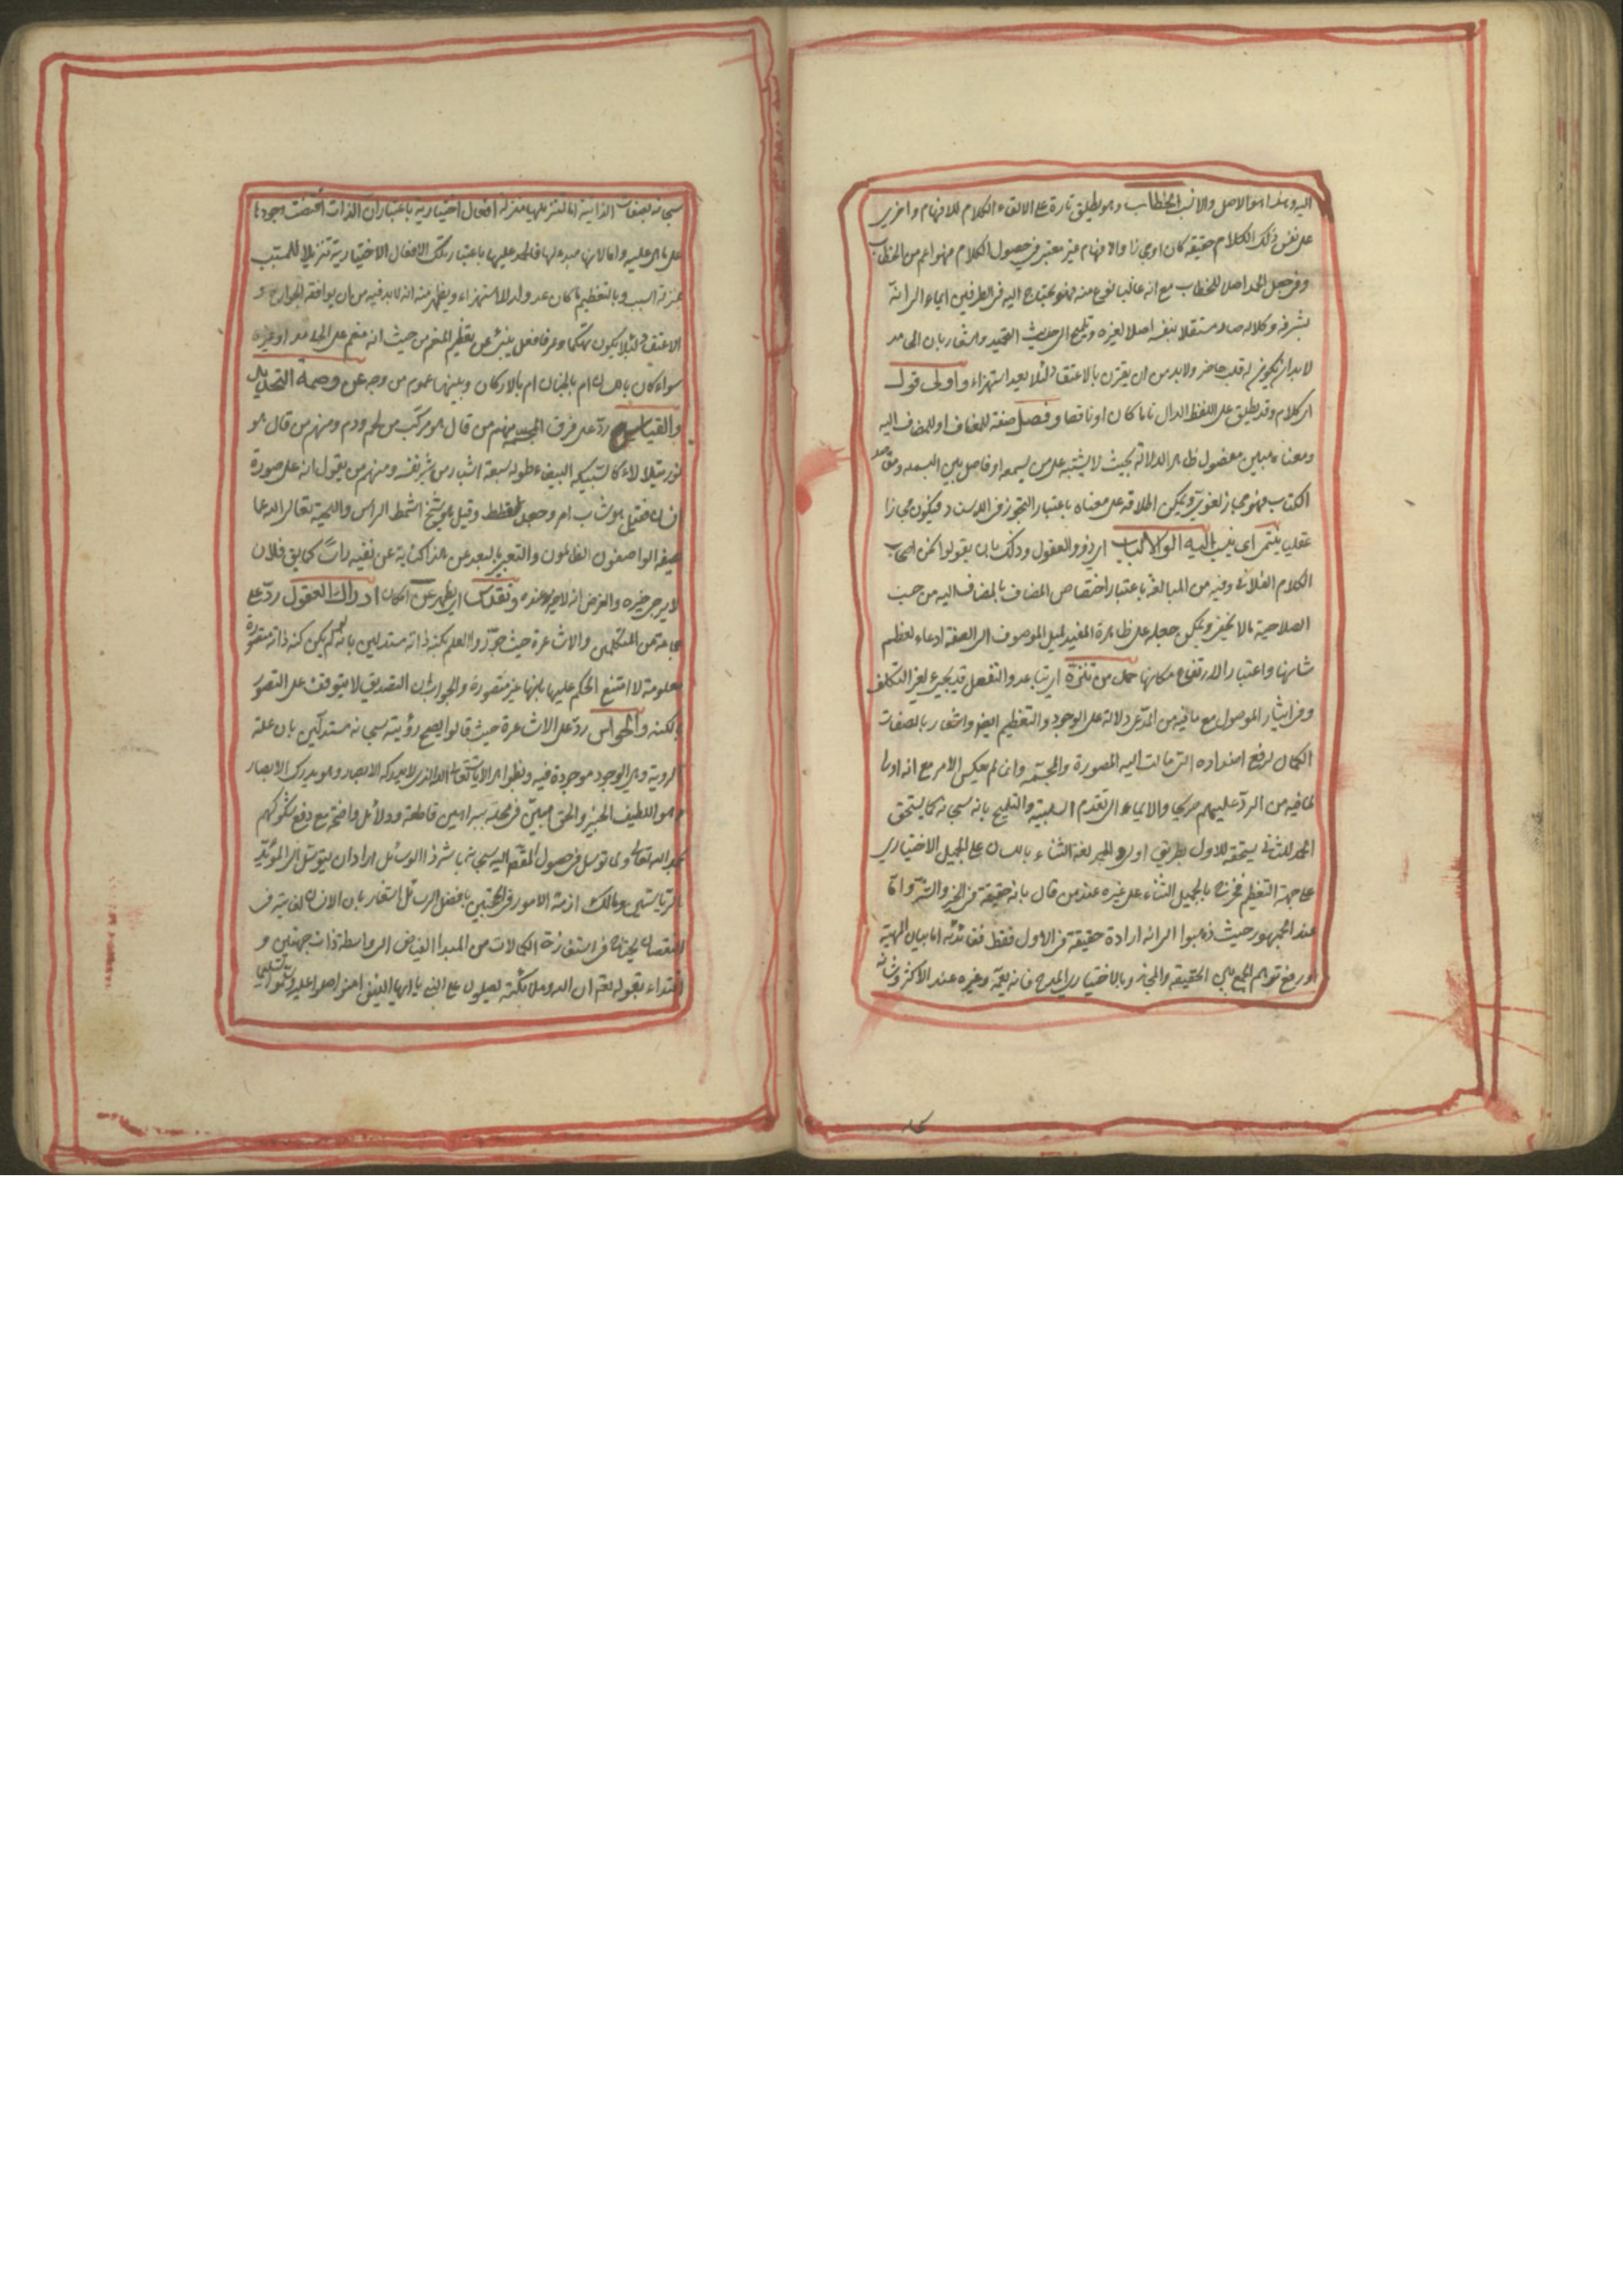 اليه وهذا هو الاصل والانسب الخطاب وهو يطلق تارة على القاء الكلام للافهام واخرى
على نفس ذلك الكلام حقيقة كان او مجازا والافهام غير معتبر في حصول الكلام فهو اعم من الخطاب
وفي جعل الحمد اصلا للخطاب مع انه غالبا نوع منه فهو يحتاج اليه في الطرفين ايماء الى انه
بشرفه وكلاله صار مستقلا بنفسه اصلا لغيره وتلميح الى حديث التحميد واشعار بان الحامد
لا بد ان يكون له قلب حاضر ولا بد من ان يقترن بالاعتقاد لئلا يعد استهزاء واولى قول
اى كلام وقد يطلق على اللفظ الدال تاما كان او ناقصا وفصل صفة للمضاف او للمضاف اليه
ومعناه مبين مفصول ظاهر الدلالة بحيث لا يشتبه على من يسمعه او فاصل بين البسملة ومقاصد
الكتاب فهو مجاز لغوى ويمكن اطلاقه على معناه باعتبار التجوز في الاسناد فيكون مجازا
عقليا ينتمى اى ينسب اليه اولو الالباب اى ذوو العقول وذلك بان يقولوا نحن اصحاب
الكلام الفلانى وفيه من المبالغة باعتبار اختصاص المضاف بالمضاف اليه من حيث
الصلاحية ما لا يخفى ويمكن جعله على ظاهره المفيد لميل الموصوف الى الصفة ادعاء لعظم
شانها واعتبار الارتفاع مكانها حمد من تنزه اى تباعد والتفعل قد يجيء لغير التكلف
وفي ايثار الموصول مع ما فيه من المدعى دلالة على الوجود والتعظيم ايضا واشعار بالصفات
الكمال لرفع اضداده التى مالت اليه المصورة والمجسمة وانما لم يعكس الامر مع انه اولى
لما فيه من الرد عليهم صريحا والايماء الى تقدم السلبية والتلميح بانه سبحانه كما يستحق
الحمد للثانى يستحقه للاول بطريق اولى والحمد لغة الثناء باللسان على الجميل الاختيارى
على جهة التعظيم فخرج بالجميل الثناء على غيره عند من قال بانه حقيقة في الخير والشر واما
عند الجمهور حيث ذهبوا الى انه ارادة حقيقة في الاول فقط ففائدته اما بيان المهية
او رفع توهم الجمع بين الحقيقة والمجاز وبالاختيارى المدح فانه يعمه وغيره عند الاكثر وثناؤه
سبحانه بصفاته الذاتية اما لتنزيلها منزلة افعال اختيارية باعتبار ان الذات اقتضت وجودها
على ما هى عليه واما لانها مبدء لها فالحمد عليها باعتبار تلك الافعال الاختيارية تنزيلا للمسبب
بمنزلة السبب وبالتعظيم ما كان على وجه الاستهزاء ويظهر منه انه لا بد فيه من ان يوافقه الجوارح و
الاعتقاد لئلا يكون تهكما وعرفا فعل ينبئ عن تعظيم المنعم من حيث انه منعم على الحامد او غيره
سواء كان باللسان ام بالجنان ام بالاركان وبينهما عموم من وجه عن وصمة التحديد
والقياس رد على فرق المجسمة منهم من قال هو مركب من لحم ودم ومنهم من قال هو
نور يتلالاء كالسبيكة البيضاء طوله سبعة اشبار من شبر نفسه ومنهم من يقول انه على صورة
انسان فقيل هو شاب امرد جعد قطط وقيل هو شيخ اشمط الراس واللحية تعالى الله عما
يصفه الواصفون الظالمون والتعبير بالبعد عن هذا كناية عن نفيه راسا كما يق فلان
لا يرجى خيره والغرض انه لا خير عنده وتقدس اى تطهر عن امكان ادراك العقول رد على
جماعة من المتكلمين والاشاعرة حيث جوزوا العلم بكنه ذاته مستدلين بانه لو لم يكن كنه ذاته متصورة
معلومة لامتنع الحكم عليها بانها غير متصورة والجواب ان التصديق لا يتوقف على التصور
بالكنه والحواس رد على الاشاعرة حيث قالوا يصح رؤيته سبحانه مستدلين بان علة
الرؤية وهى الوجود موجودة فيه وبظواهر الايات تعالى الله الذى لا تدركه الابصار وهو يدرك الابصار
وهو اللطيف الخبير والحق مبين في محله ببراهين قاطعة ودلائل واضحة مع دفع شكوكهم
بحمد الله تعالى ولما توسل في حصول المقصد اليه سبحانه باشرف الوسائل اراد ان يتوسل الى المؤيد
بالرياستين ومالك ازمة الامور في الجنبتين بافضل الرسائل اشعار بان الانسان لغاية في
النقصان يحتاج في استفاضة الكمالات من المبدأ الفياض الى واسطة ذات جهتين و
اقتداء بقوله تعالى ان الله وملائكته يصلون على النبى يا ايها الذين امنوا صلوا عليه وسلموا تسليما